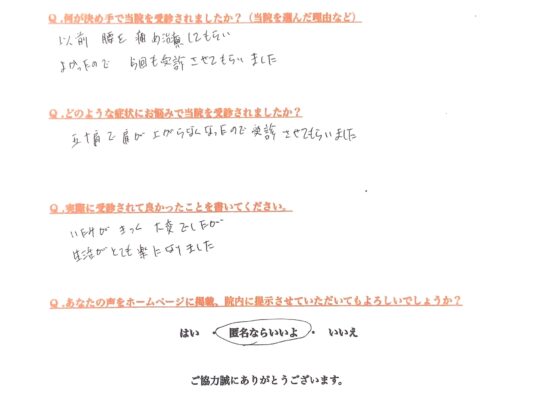 Q.何が決め手で当院を受診されましたか？（当院を選んだ理由など）
以前 腰を痛め治療してもらい
よかったので 今回も受診させてもらいました
Q.どのような症状にお悩みで当院を受診されましたか？
五十肩で肩が上がらなくなったので受診させてもらいました
Q.実際に受診されて良かったことを書いてください。
いたみがきつく 大変でしたが
生活がとても楽になりました
Q.あなたの声をホームページに掲載、院内に提示させていただいてもよろしいでしょうか？
はい ・ 匿名ならいいよ ・ いいえ
ご協力誠にありがとうございます。